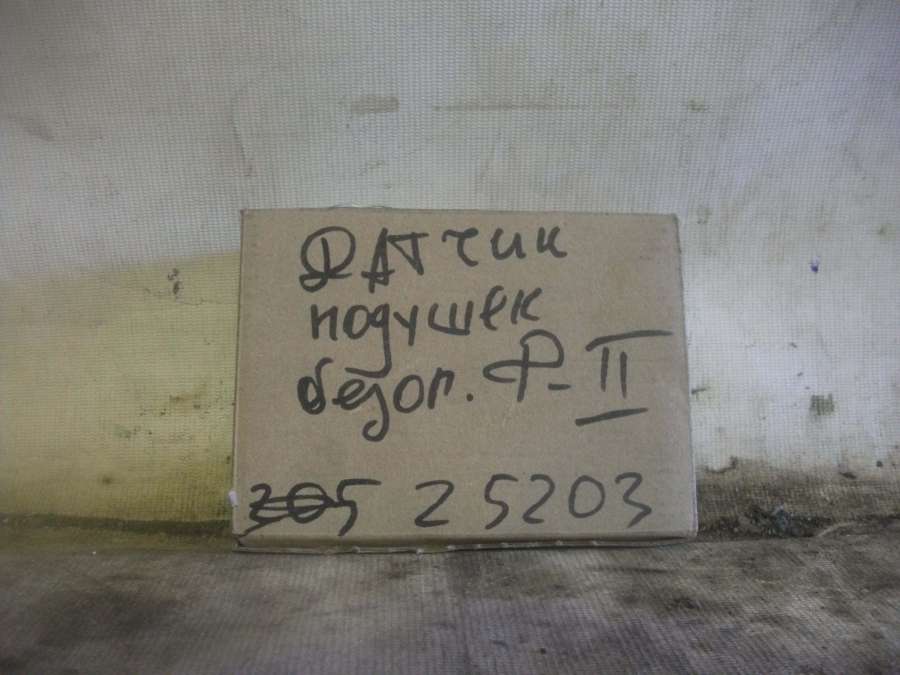 Датчик
подушек
безоп. Ф-II
305 2 5203